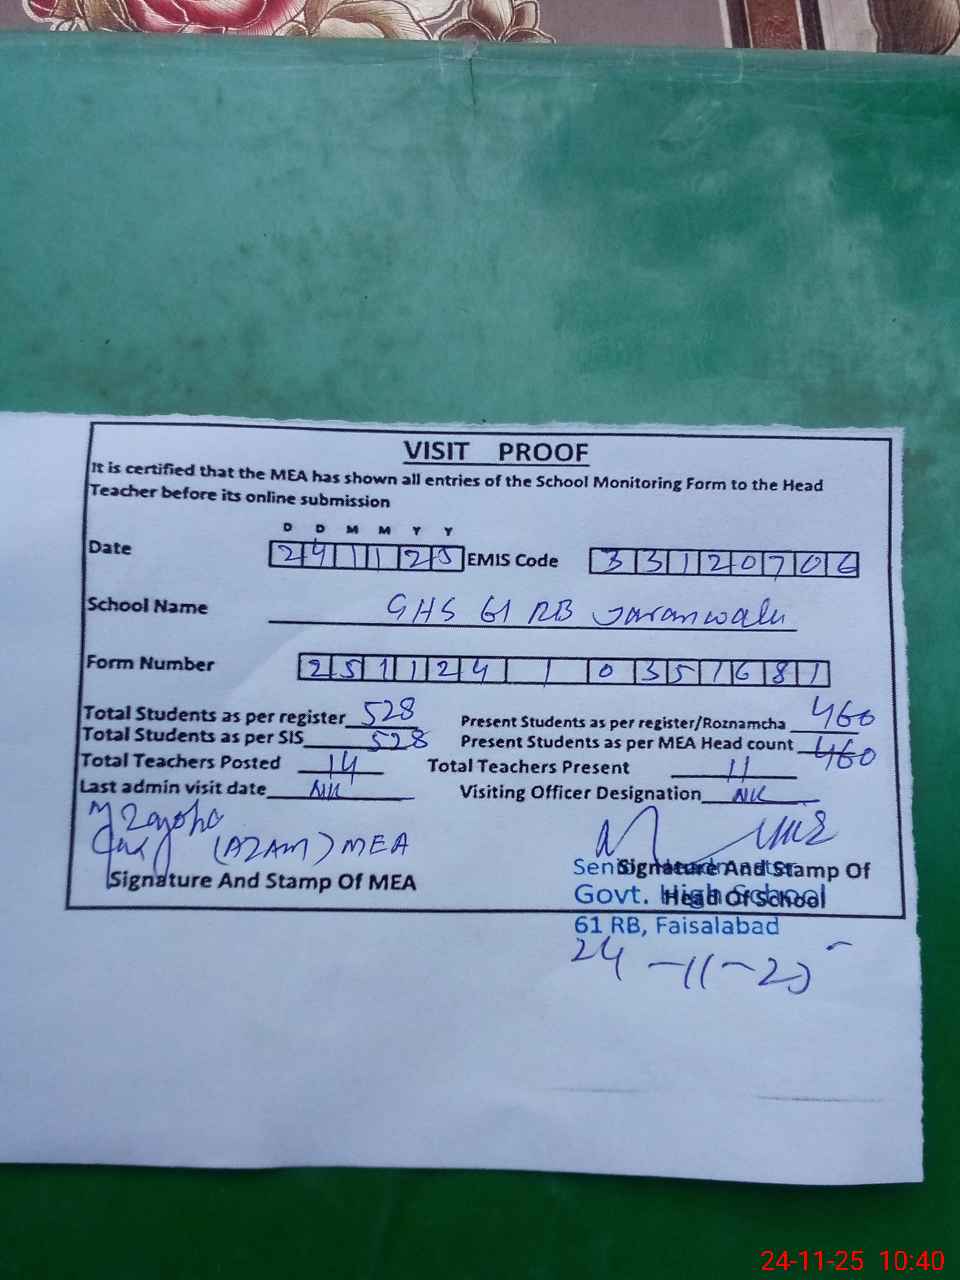 VISIT PROOF
It is certified that the MEA has shown all entries of the School Monitoring Form to the Head
Teacher before its online submission
D D M M Y Y
Date 241125 EMIS Code 33120706
School Name GHS 61 RB Jaranwala
Form Number 251124 1 0357681
Total Students as per register 528 Present Students as per register/Roznamcha 460
Total Students as per SIS 528 Present Students as per MEA Head count 460
Total Teachers Posted 14 Total Teachers Present 11
Last admin visit date Nil Visiting Officer Designation Nil
(AZAM) MEA
Signature And Stamp Of MEA Signature And Stamp Of
Head Of School
Senior Headmaster
Govt. High School
61 RB, Faisalabad
24-11-25
24-11-25 10:40